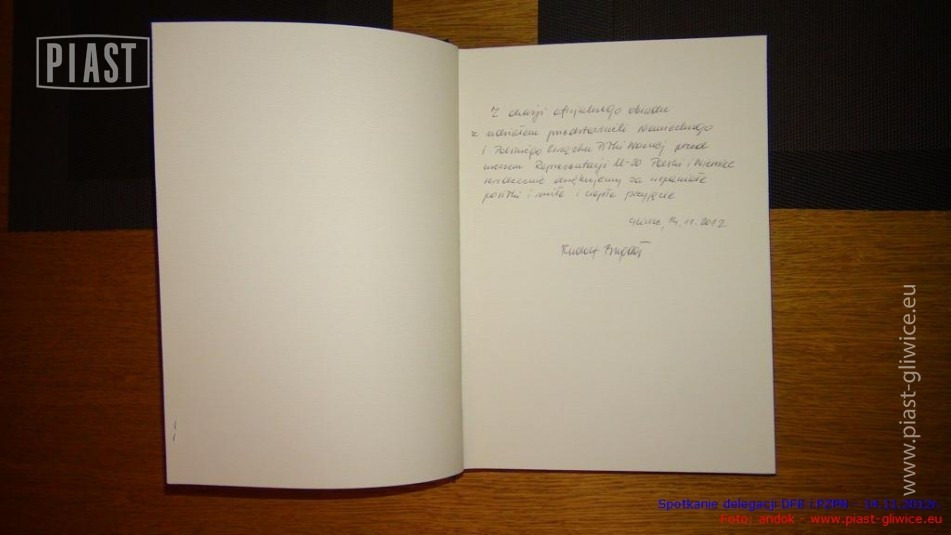 PIAST
Z okazji oficjalnego obiadu
z udziałem przedstawicieli Niemieckiego
i Polskiego Związku Piłki Nożnej przed
meczem Reprezentacji U-20 Polski i Niemiec
serdecznie dziękujemy za wspaniałe
posiłki i miłe i ciepłe przyjęcie
Gliwice, 14.11.2012
Rudolf
www.piast-gliwice.eu
Spotkanie delegacji DFB i PZPN - 14.11.2012r.
Foto: andok - www.piast-gliwice.eu